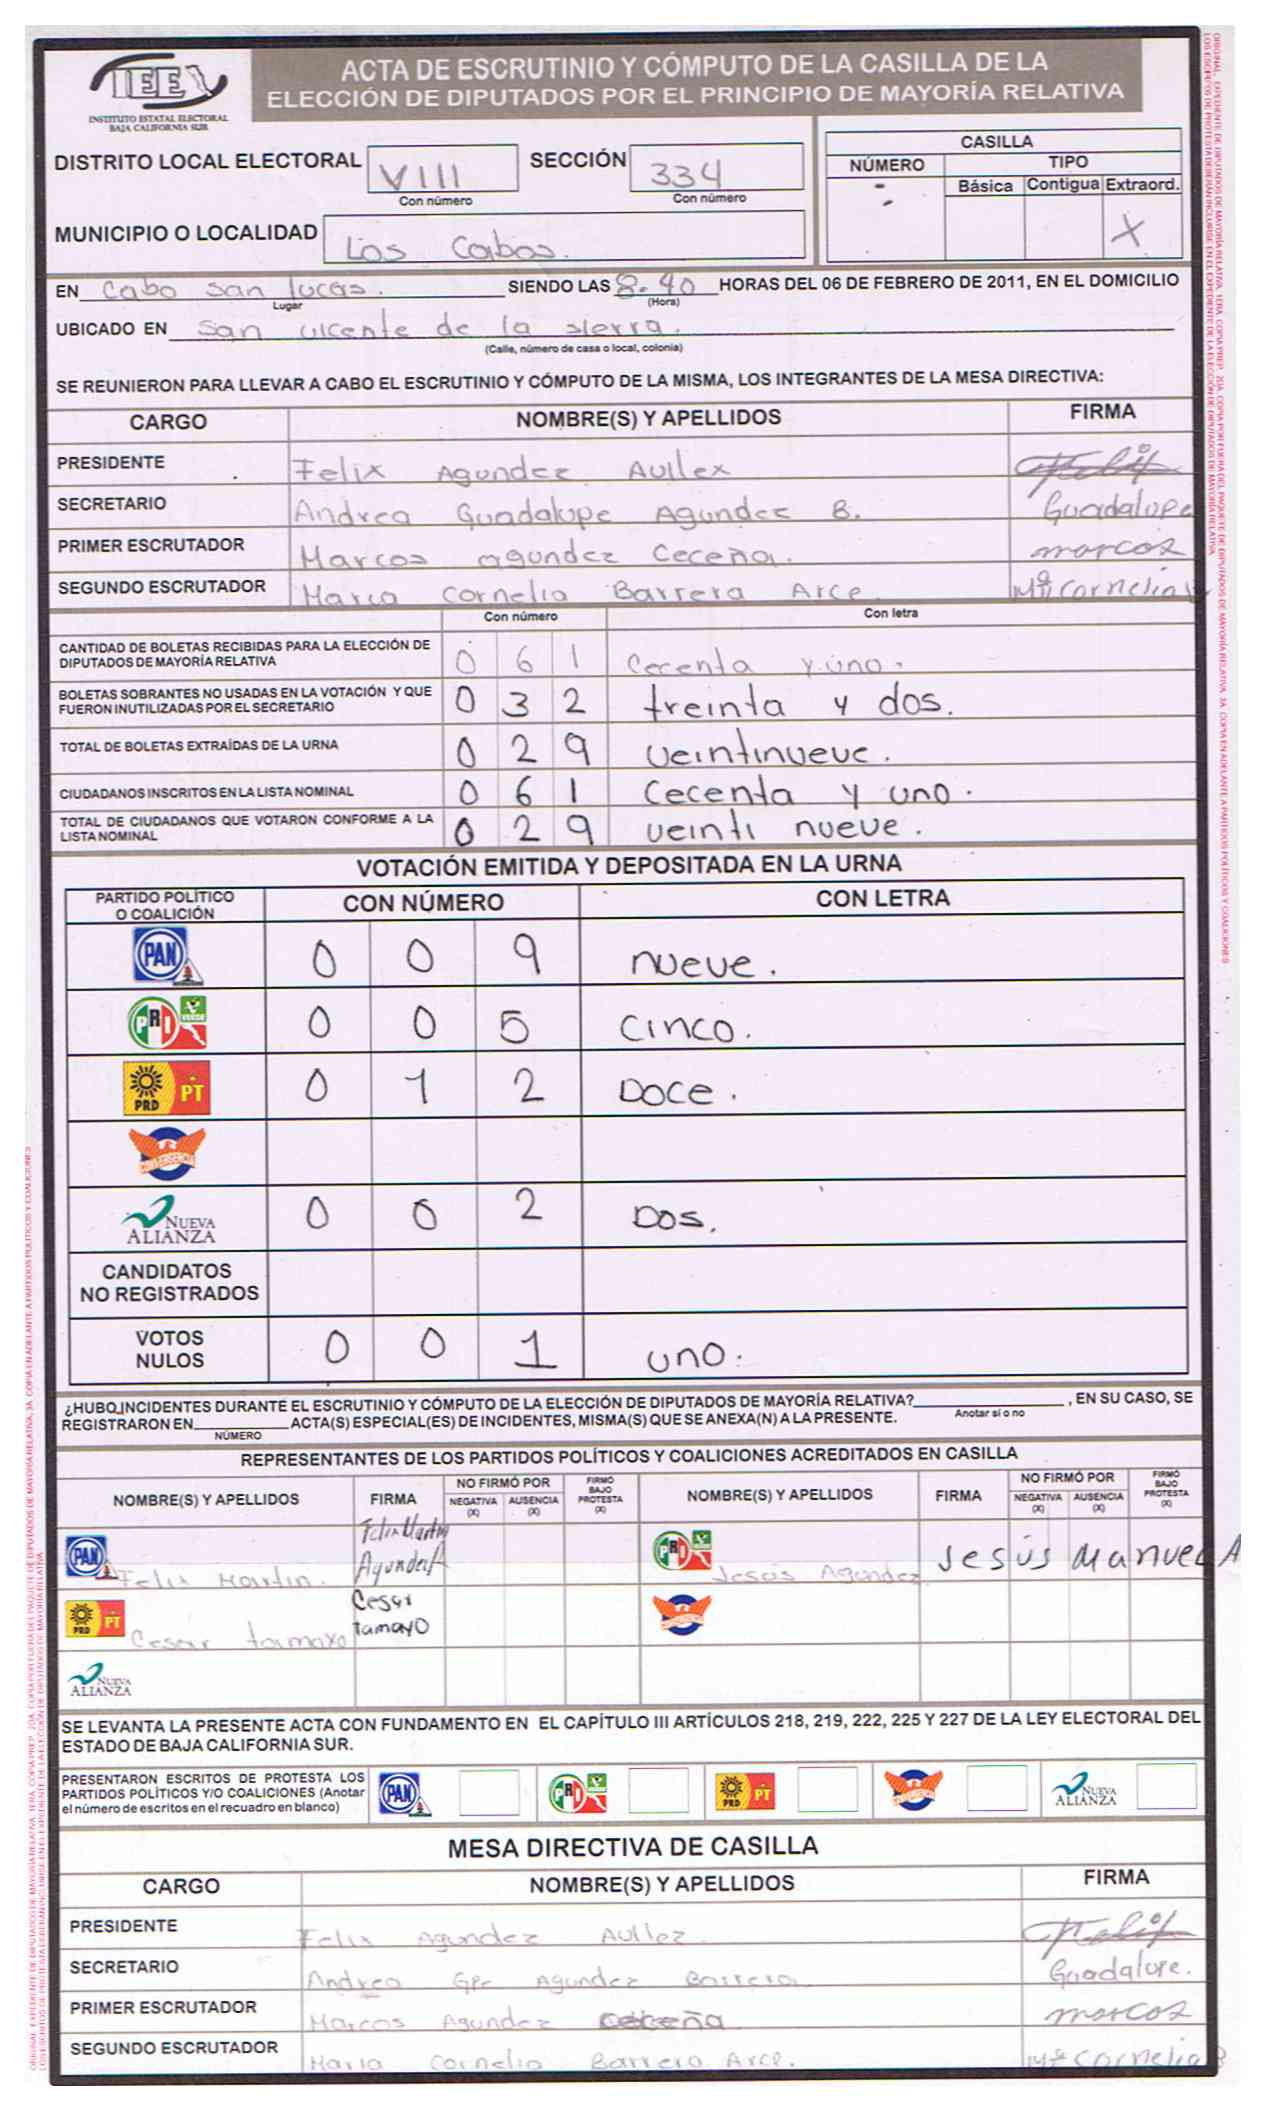 IEE
INSTITUTO ESTATAL ELECTORAL
BAJA CALIFORNIA SUR
ACTA DE ESCRUTINIO Y CÓMPUTO DE LA CASILLA DE LA
ELECCIÓN DE DIPUTADOS POR EL PRINCIPIO DE MAYORÍA RELATIVA
DISTRITO LOCAL ELECTORAL VIII SECCIÓN 334
Con número Con número
CASILLA
NÚMERO TIPO
Básica Contigua Extraord.
X
MUNICIPIO O LOCALIDAD Los Cabos.
EN Cabo san lucas. SIENDO LAS 8.40 HORAS DEL 06 DE FEBRERO DE 2011, EN EL DOMICILIO
Lugar (Hora)
UBICADO EN san vicente de la sierra.
(Calle, número de casa o local, colonia)
SE REUNIERON PARA LLEVAR A CABO EL ESCRUTINIO Y CÓMPUTO DE LA MISMA, LOS INTEGRANTES DE LA MESA DIRECTIVA:
CARGO NOMBRE(S) Y APELLIDOS FIRMA
PRESIDENTE Felix Agundez Aullex
SECRETARIO Andrea Guadalupe Agundez B. Guadalupe
PRIMER ESCRUTADOR Marcos agundez Ceceña. marcos
SEGUNDO ESCRUTADOR Maria Cornelia Barrera Arce Mª Cornelia B
Con número Con letra
CANTIDAD DE BOLETAS RECIBIDAS PARA LA ELECCIÓN DE
DIPUTADOS DE MAYORÍA RELATIVA 0 6 1 Cecenta y uno.
BOLETAS SOBRANTES NO USADAS EN LA VOTACIÓN Y QUE
FUERON INUTILIZADAS POR EL SECRETARIO 0 3 2 treinta y dos.
TOTAL DE BOLETAS EXTRAÍDAS DE LA URNA 0 2 9 veintinueve.
CIUDADANOS INSCRITOS EN LA LISTA NOMINAL 0 6 1 Cecenta y uno.
TOTAL DE CIUDADANOS QUE VOTARON CONFORME A LA
LISTA NOMINAL 0 2 9 veinti nueve.
VOTACIÓN EMITIDA Y DEPOSITADA EN LA URNA
PARTIDO POLÍTICO
O COALICIÓN CON NÚMERO CON LETRA
PAN 0 0 9 nueve.
PRI VERDE 0 0 5 cinco.
PRD PT 0 1 2 DOCE.
CONVERGENCIA
NUEVA ALIANZA 0 0 2 DOS.
CANDIDATOS
NO REGISTRADOS
VOTOS
NULOS 0 0 1 uno.
¿HUBO INCIDENTES DURANTE EL ESCRUTINIO Y CÓMPUTO DE LA ELECCIÓN DE DIPUTADOS DE MAYORÍA RELATIVA? , EN SU CASO, SE
Anotar sí o no
REGISTRARON EN ACTA(S) ESPECIAL(ES) DE INCIDENTES, MISMA(S) QUE SE ANEXA(N) A LA PRESENTE.
NÚMERO
REPRESENTANTES DE LOS PARTIDOS POLÍTICOS Y COALICIONES ACREDITADOS EN CASILLA
NOMBRE(S) Y APELLIDOS FIRMA NO FIRMÓ POR NEGATIVA (X) AUSENCIA (X) FIRMÓ BAJO PROTESTA (X) NOMBRE(S) Y APELLIDOS FIRMA NO FIRMÓ POR NEGATIVA (X) AUSENCIA (X) FIRMÓ BAJO PROTESTA (X)
PAN Felix Martin. Felix Martin Agundez A PRI Jesus Agundez Jesús Manuel A
PRD PT Cesar tamayo Cesar tamayo CONVERGENCIA
NUEVA ALIANZA
SE LEVANTA LA PRESENTE ACTA CON FUNDAMENTO EN EL CAPÍTULO III ARTÍCULOS 218, 219, 222, 225 Y 227 DE LA LEY ELECTORAL DEL
ESTADO DE BAJA CALIFORNIA SUR.
PRESENTARON ESCRITOS DE PROTESTA LOS
PARTIDOS POLÍTICOS Y/O COALICIONES (Anotar
el número de escritos en el recuadro en blanco)
PAN PRI PRD PT CONVERGENCIA NUEVA ALIANZA
MESA DIRECTIVA DE CASILLA
CARGO NOMBRE(S) Y APELLIDOS FIRMA
PRESIDENTE Felix Agundez Aullez
SECRETARIO Andrea Gpe Agundez Barrera Guadalupe.
PRIMER ESCRUTADOR Marcos Agundez Ceceña marcos
SEGUNDO ESCRUTADOR Maria Cornelia Barrera Arce. Mª Cornelia B